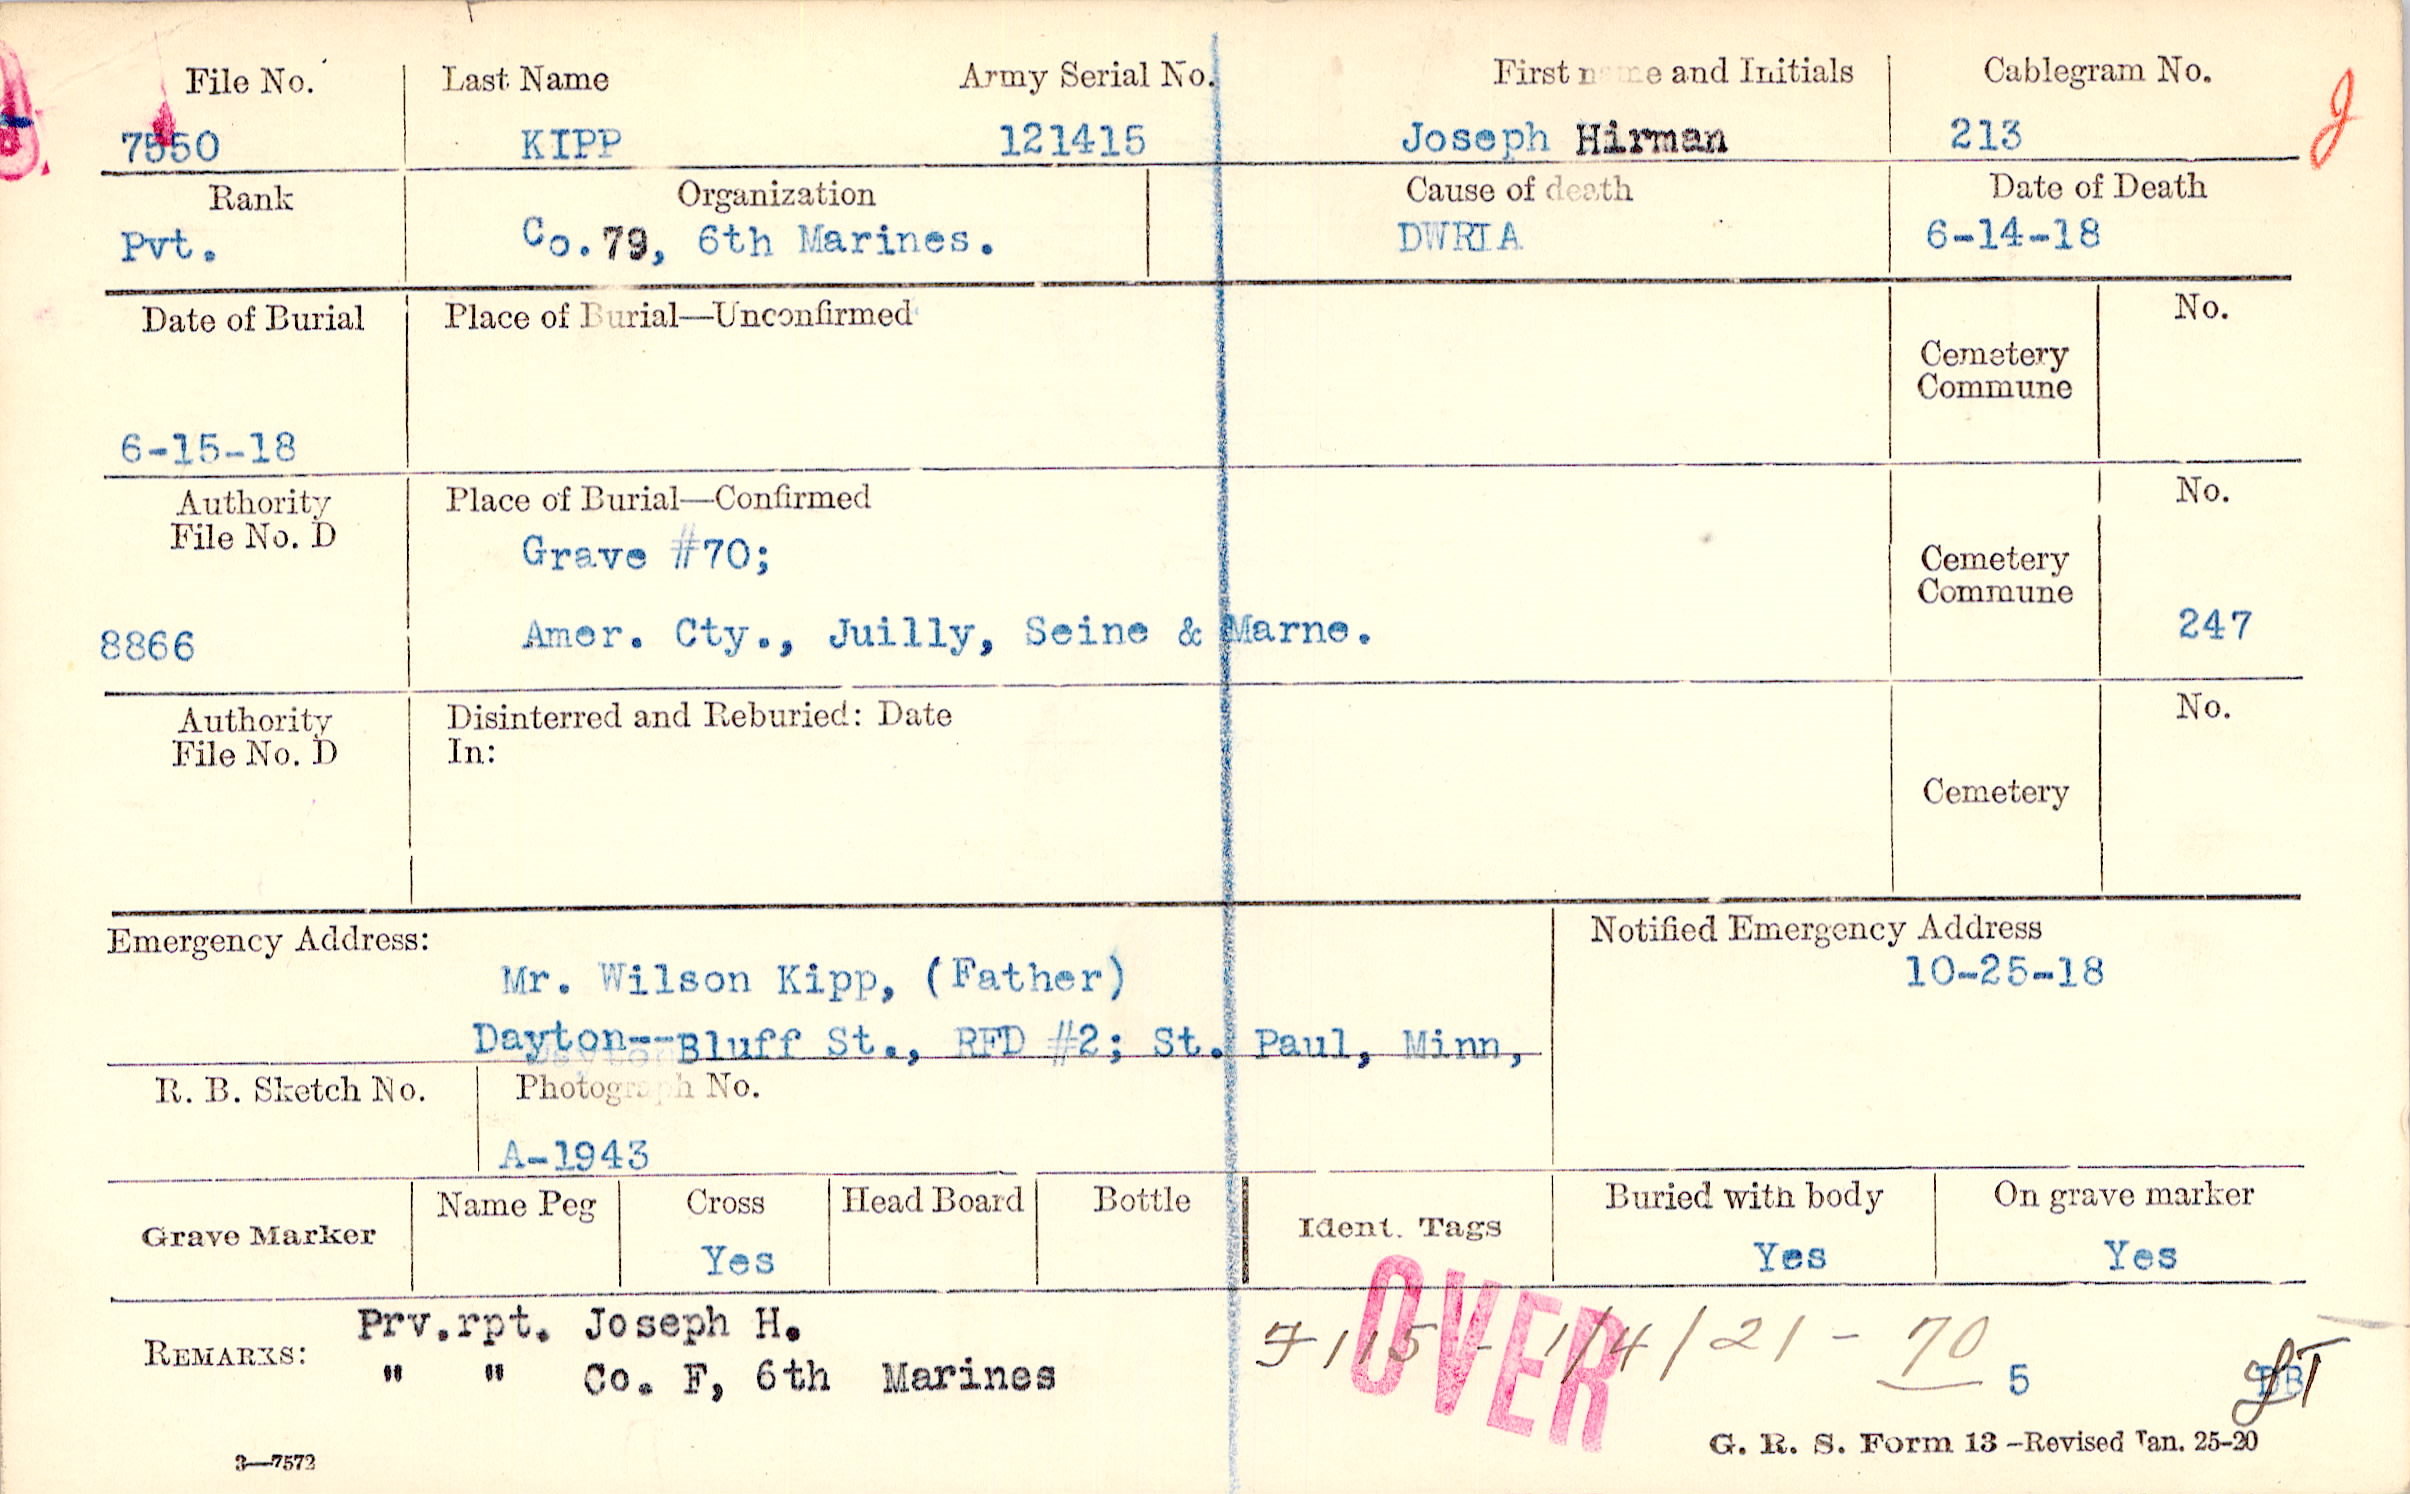 File No. Last Name Army Serial No. First name and Initials Cablegram No.
7550 KIPP 121415 Joseph Hirman 213
J
Rank Organization Cause of death Date of Death
Pvt. Co. 79, 6th Marines. DWRIA 6-14-18
Date of Burial Place of Burial—Unconfirmed No.
Cemetery
Commune
6-15-18
Authority Place of Burial—Confirmed No.
File No. D
Grave #70;
Cemetery
Commune
8866 Amer. Cty., Juilly, Seine & Marne. 247
Authority Disinterred and Reburied: Date No.
File No. D In:
Cemetery
Emergency Address: Notified Emergency Address
10-25-18
Mr. Wilson Kipp, (Father)
Dayton--Bluff St., RFD #2; St. Paul, Minn,
R. B. Sketch No. Photograph No.
A-1943
Grave Marker Name Peg Cross Head Board Bottle Ident. Tags Buried with body On grave marker
Yes Yes Yes
REMARKS: Prv.rpt. Joseph H.
" " Co. F, 6th Marines
OVER
115 - 1/4/21 - 70 5
3—7572 G. R. S. Form 13 -Revised Jan. 25-20